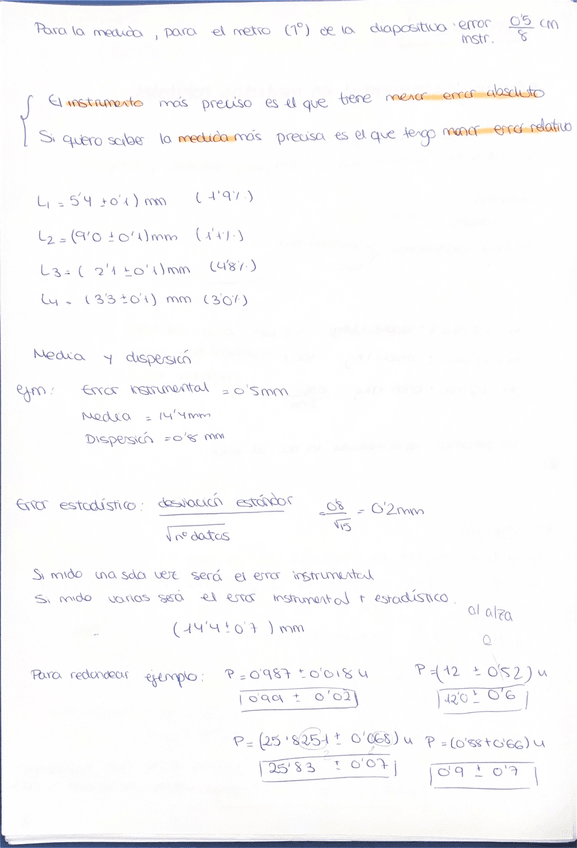 Para la medida, para el metro (1º) de la diapositiva · error instr. 0'5/8 cm
El instrumento más preciso es el que tiene menor error absoluto
Si quero saber la medida más precisa es el que tengo menor error relativo
L1 = 5'4 ± 0'1) mm (1'9%)
L2 = (9'0 ± 0'1) mm (1'1%)
L3 = (2'1 ± 0'1) mm (4'8%)
L4 = (3'3 ± 0'1) mm (3'0%)
Media y dispersión
ejm: Error instrumental = 0'5mm
Media = 14'4mm
Dispersión = 0'8 mm
Error estadístico: desviación estándar / √nº datos 0'8/√15 = 0'2mm
Si mido una sola vez será el error instrumental
Si mido varias será el error instrumental + estadístico.
al alza
(14'4 ± 0'7) mm
Para redondear ejemplo: P = 0'987 ± 0'018 u P = (12 ± 0'52) u
0'99 ± 0'02 12'0 ± 0'6
P = (25'8251 ± 0'068) u P = (0'88 ± 0'66) u
25'83 ± 0'07 0'9 ± 0'7